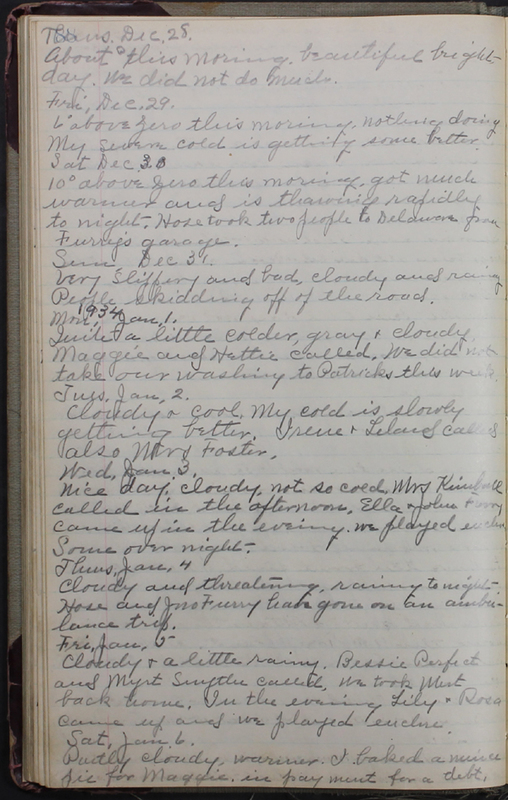 Thurs. Dec. 28.
About ° this moring. beautiful bright
day. We did not do much.
Fri, Dec. 29.
6° above zero this moring, nothing doing
My severe cold is gettnig some better.
Sat Dec 30
10° above zero this moring, got much
warmer and is thawing rapidly
to night. Hose took two people to Delaware from
Furrys garage.
Sun Dec 31.
Very Slippery and bad, cloudy and rainy
People skidding off of the road.
Mon, Jan, 1. 1934
Quite a little colder, gray & cloudy,
Maggie and Hettie called. We did not
take our washing to Patricks this week.
Tues, Jan, 2.
Cloudy & cool. My cold is slowly
getting better. Irene & Leland called
also Mrs Foster.
Wed, Jan 3.
Nice day, cloudy, not so cold, Mrs Kimball
called in the afternoon, Ella & John Furry
came up in the evening. we played euchre
Some over night.
Thurs, Jan, 4
Cloudy and threatening, rainy to night.
Hose and Jno Furry have gone on an ambu-
lance trip.
Fri, Jan, 5
Cloudy & a little rainy. Bessie Perfect
and Myrt Smythe called, We took Myrt
back home. In the evening Lily & Rosa
came up and we played euchre.
Sat, Jan 6.
Partly cloudy, warmer. I baked a mince
pie for Maggie. in pay ment for a debt,